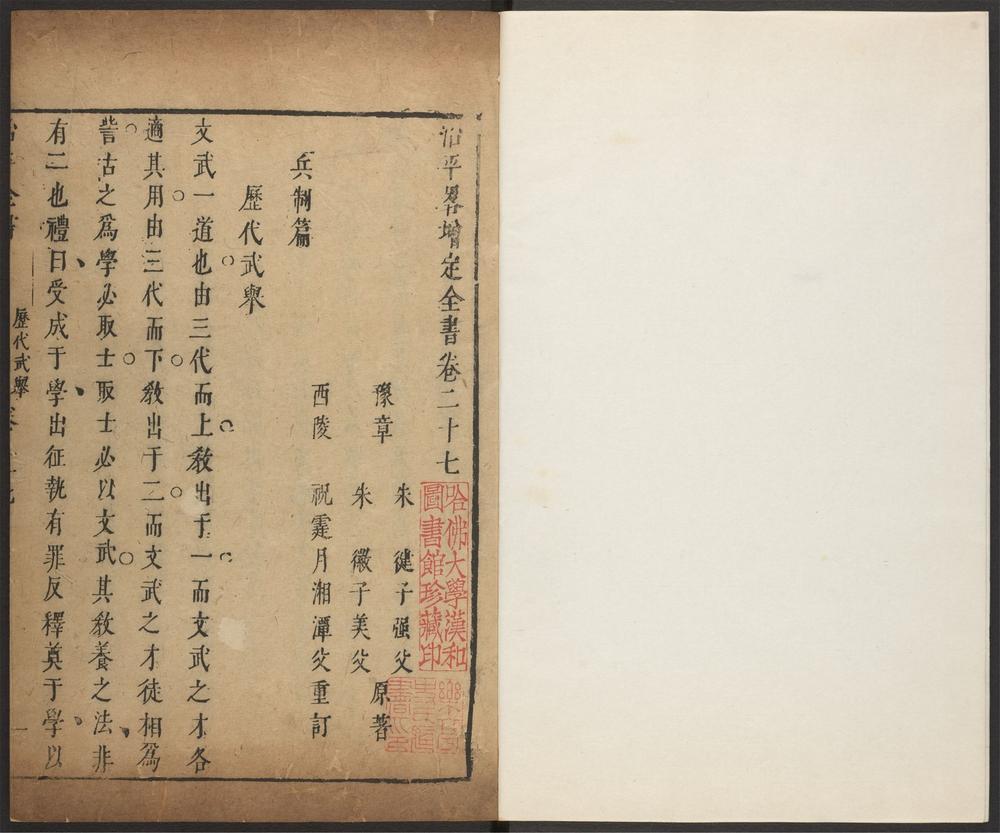 治平畧增定全書卷二十七
豫章
朱　健子强父
朱　徽子美父
原著
西陵　祝霆月湘潭父重訂
兵制篇
歷代武舉
文武一道也由三代而上敎出于一而文武之才各
適其用由三代而下敎出于二而文武之才徒相爲
訾古之爲學必取士取士必以文武其敎養之法非
有二也禮曰受成于學出征執有罪反釋奠于學以
歷代武舉
哈佛大學漢和
圖書館珍藏印